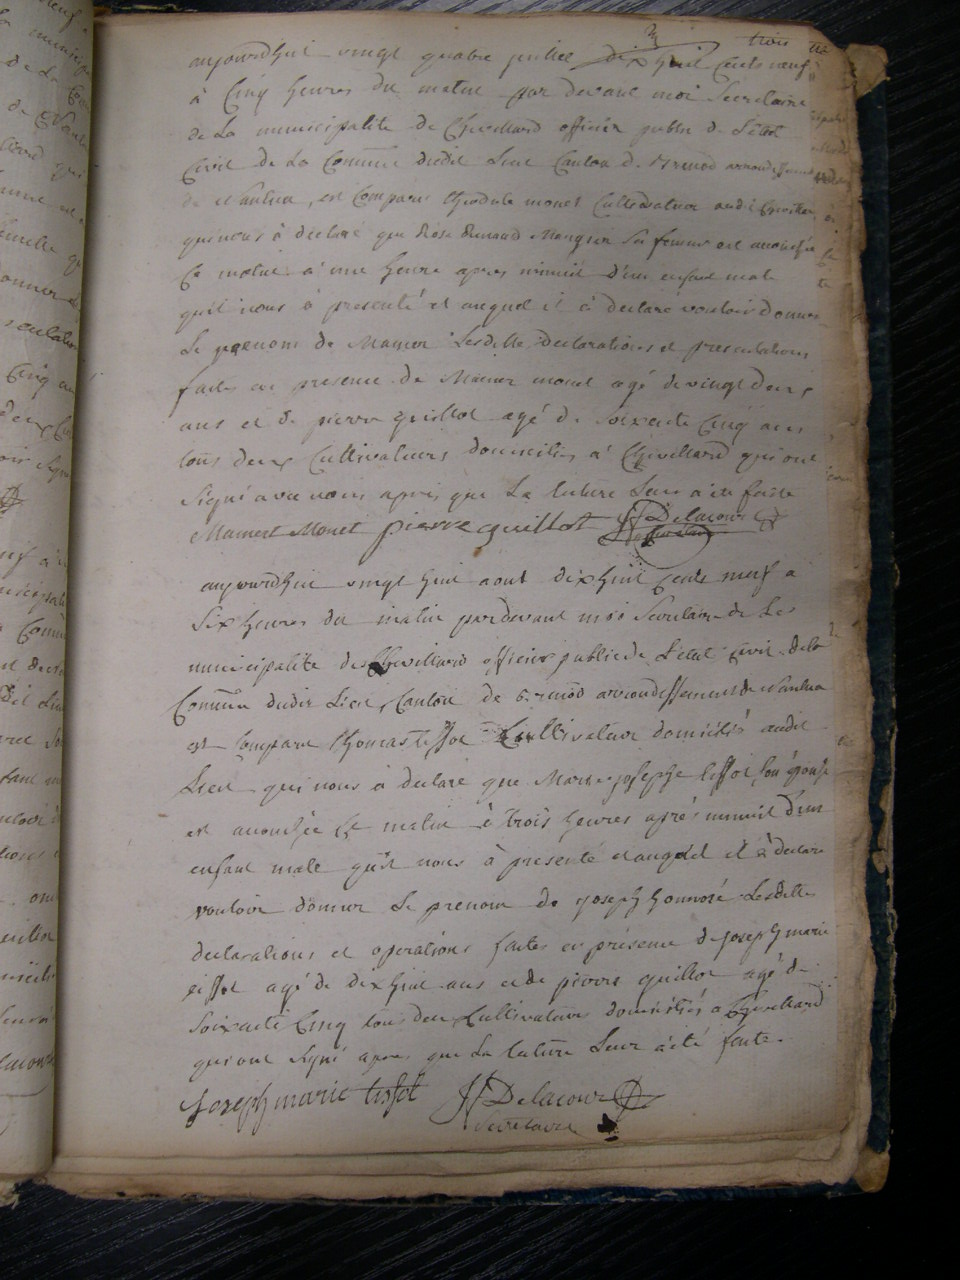 trois
aujourdhui vingt quatre juillet dix huit cents neuf
à Cinq heures du matin par devant moi Secretaire
de La municipalité de Chevillard officier public de L'état
Civil de La Commune dudit Lieu Canton de Brenod arrondissement
de Nantua, est Comparu Theodule monet Cultivateur audit
qui nous à déclaré que Rose Renaud Mangier Sa femme est accouchée
Ce matin à une heure apres minuit d'un enfant male
quil nous à presenté et auquel il à declaré vouloir donner
Le prenom de Mamert Lesdittes declarations et presentations
faites en presence de Mamert monet agé de vingt deux
ans et de pierre quillot agé de soixante Cinq ans
tous deux Cultivateurs domiciliés à Chevillard qui ont
Signé avec nous apres que La lecture Leur a été faite
Mamert Monet pierre quillot JJ Delacour
Secretaire
aujourdhui vingt huit aout dix huit cents neuf a
Six heures du matin pardevant moi Secretaire de La
municipalité de Chevillard officier public de L'état civil de la
Commune dudit Lieu, Canton de Brenod arrondissement de Nantua
est Comparu thomas tissot Cultivateur domicilié audit
Lieu qui nous à déclaré que Marie josephe tissot son épouse
est accouchée ce matin à trois heures après minuit d'un
enfant male qu'il nous à presenté et auquel il à declaré
vouloir donner Le prenom de joseph honnoré Lesdittes
declarations et operations faites en présence de joseph marie
tissot agé de dix huit ans et de pierre quillot agé de
soixante Cinq tous deux Cultivateurs domiciliés à Chevillard
qui ont signé apres que La lecture Leur à été faite.
joseph marie tissot JJ Delacour
Secretaire